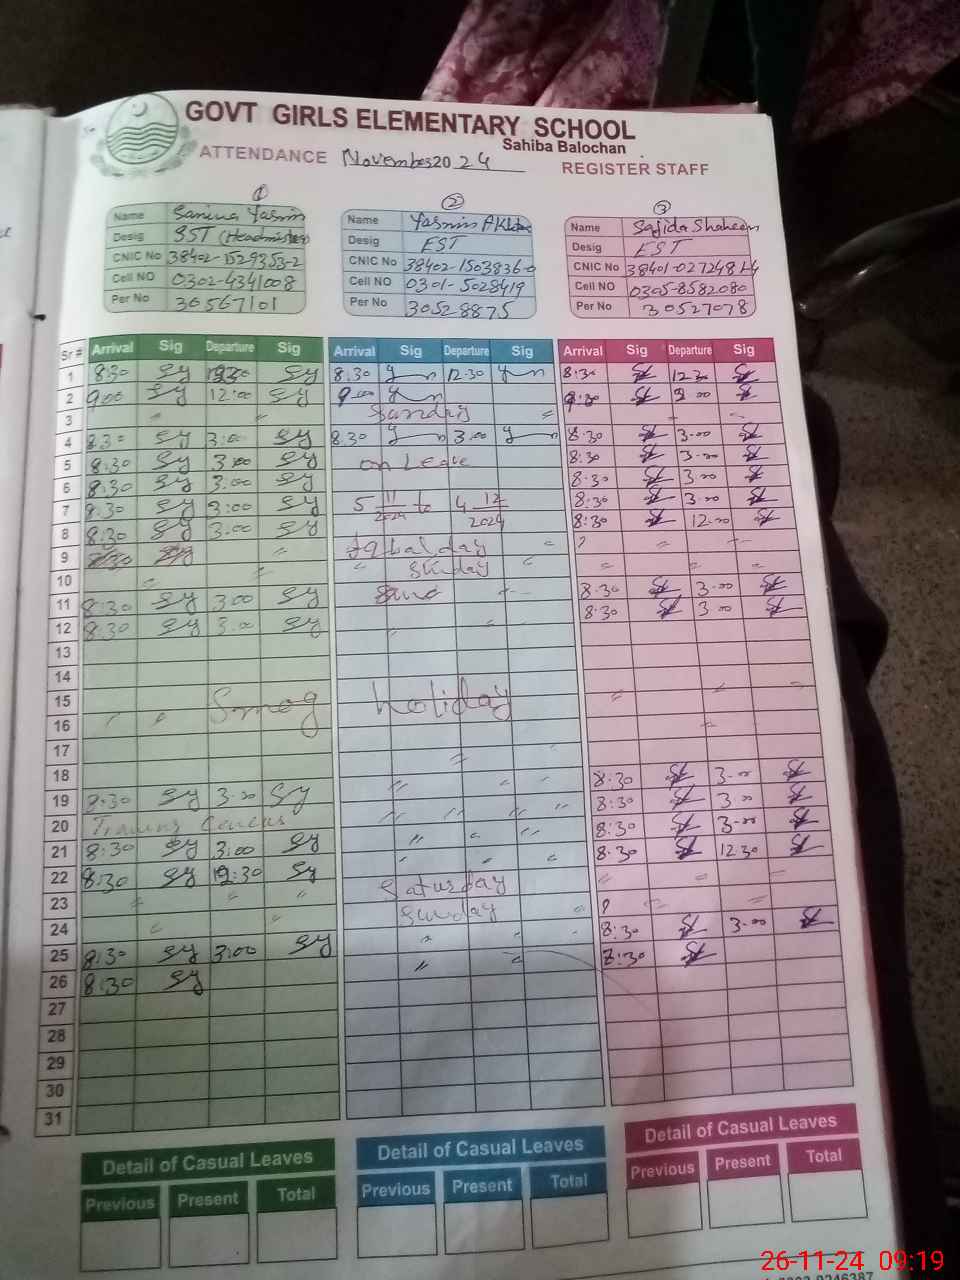 GOVT GIRLS ELEMENTARY SCHOOL
Sahiba Balochan
ATTENDANCE November 2024 REGISTER STAFF
1 2 3
Name Samina Yasmin
Desig SST (Headmistress)
CNIC No 38402-1529353-2
Cell NO 0302-4341008
Per No 30567101
Name Yasmin Akhtar
Desig EST
CNIC No 38402-1503836-0
Cell NO 0301-5028419
Per No 30528875
Name Sajida Shaheen
Desig EST
CNIC No
Cell NO 0305-8582080
Per No 30527078
Sr # Arrival Sig Departure Sig Arrival Sig Departure Sig Arrival Sig Departure Sig
1 8:30 sy sy 8.30 12.30 8:30 12 30
2 9:00 sy 12:00 sy 9:00 9 00
3 Sunday
4 8:30 sy 3:00 sy 8.30 3.00 8:30 3-00
5 8:30 sy 3:00 sy on Leave 8:30 3-00
6 8:30 sy 3:00 sy 8:30 3-00
7 8:30 sy 3:00 sy 5 11/2024 to 4 12/2024 8:30 3-00
8 8:30 sy 3:00 sy 8:30 12-00
9 Iqbal day
10 Sunday
11 8:30 sy 3:00 sy 8:30 3-00
12 8:30 sy 3:00 sy 8:30 3-00
13
14
15 Smog Holiday
16
17
18 8:30 3-00
19 8:30 sy 3-00 sy 8:30 3-00
20 Training 8:30 3-00
21 8:30 sy 3:00 sy 8:30 12:30
22 8:30 sy 12:30 sy Saturday
23 Sunday
24 8:30 3-00
25 8:30 sy 3:00 sy 8:30
26 8:30 sy
27
28
29
30
31
Detail of Casual Leaves Detail of Casual Leaves Detail of Casual Leaves
Previous Present Total Previous Present Total Previous Present Total
26-11-24 09:19